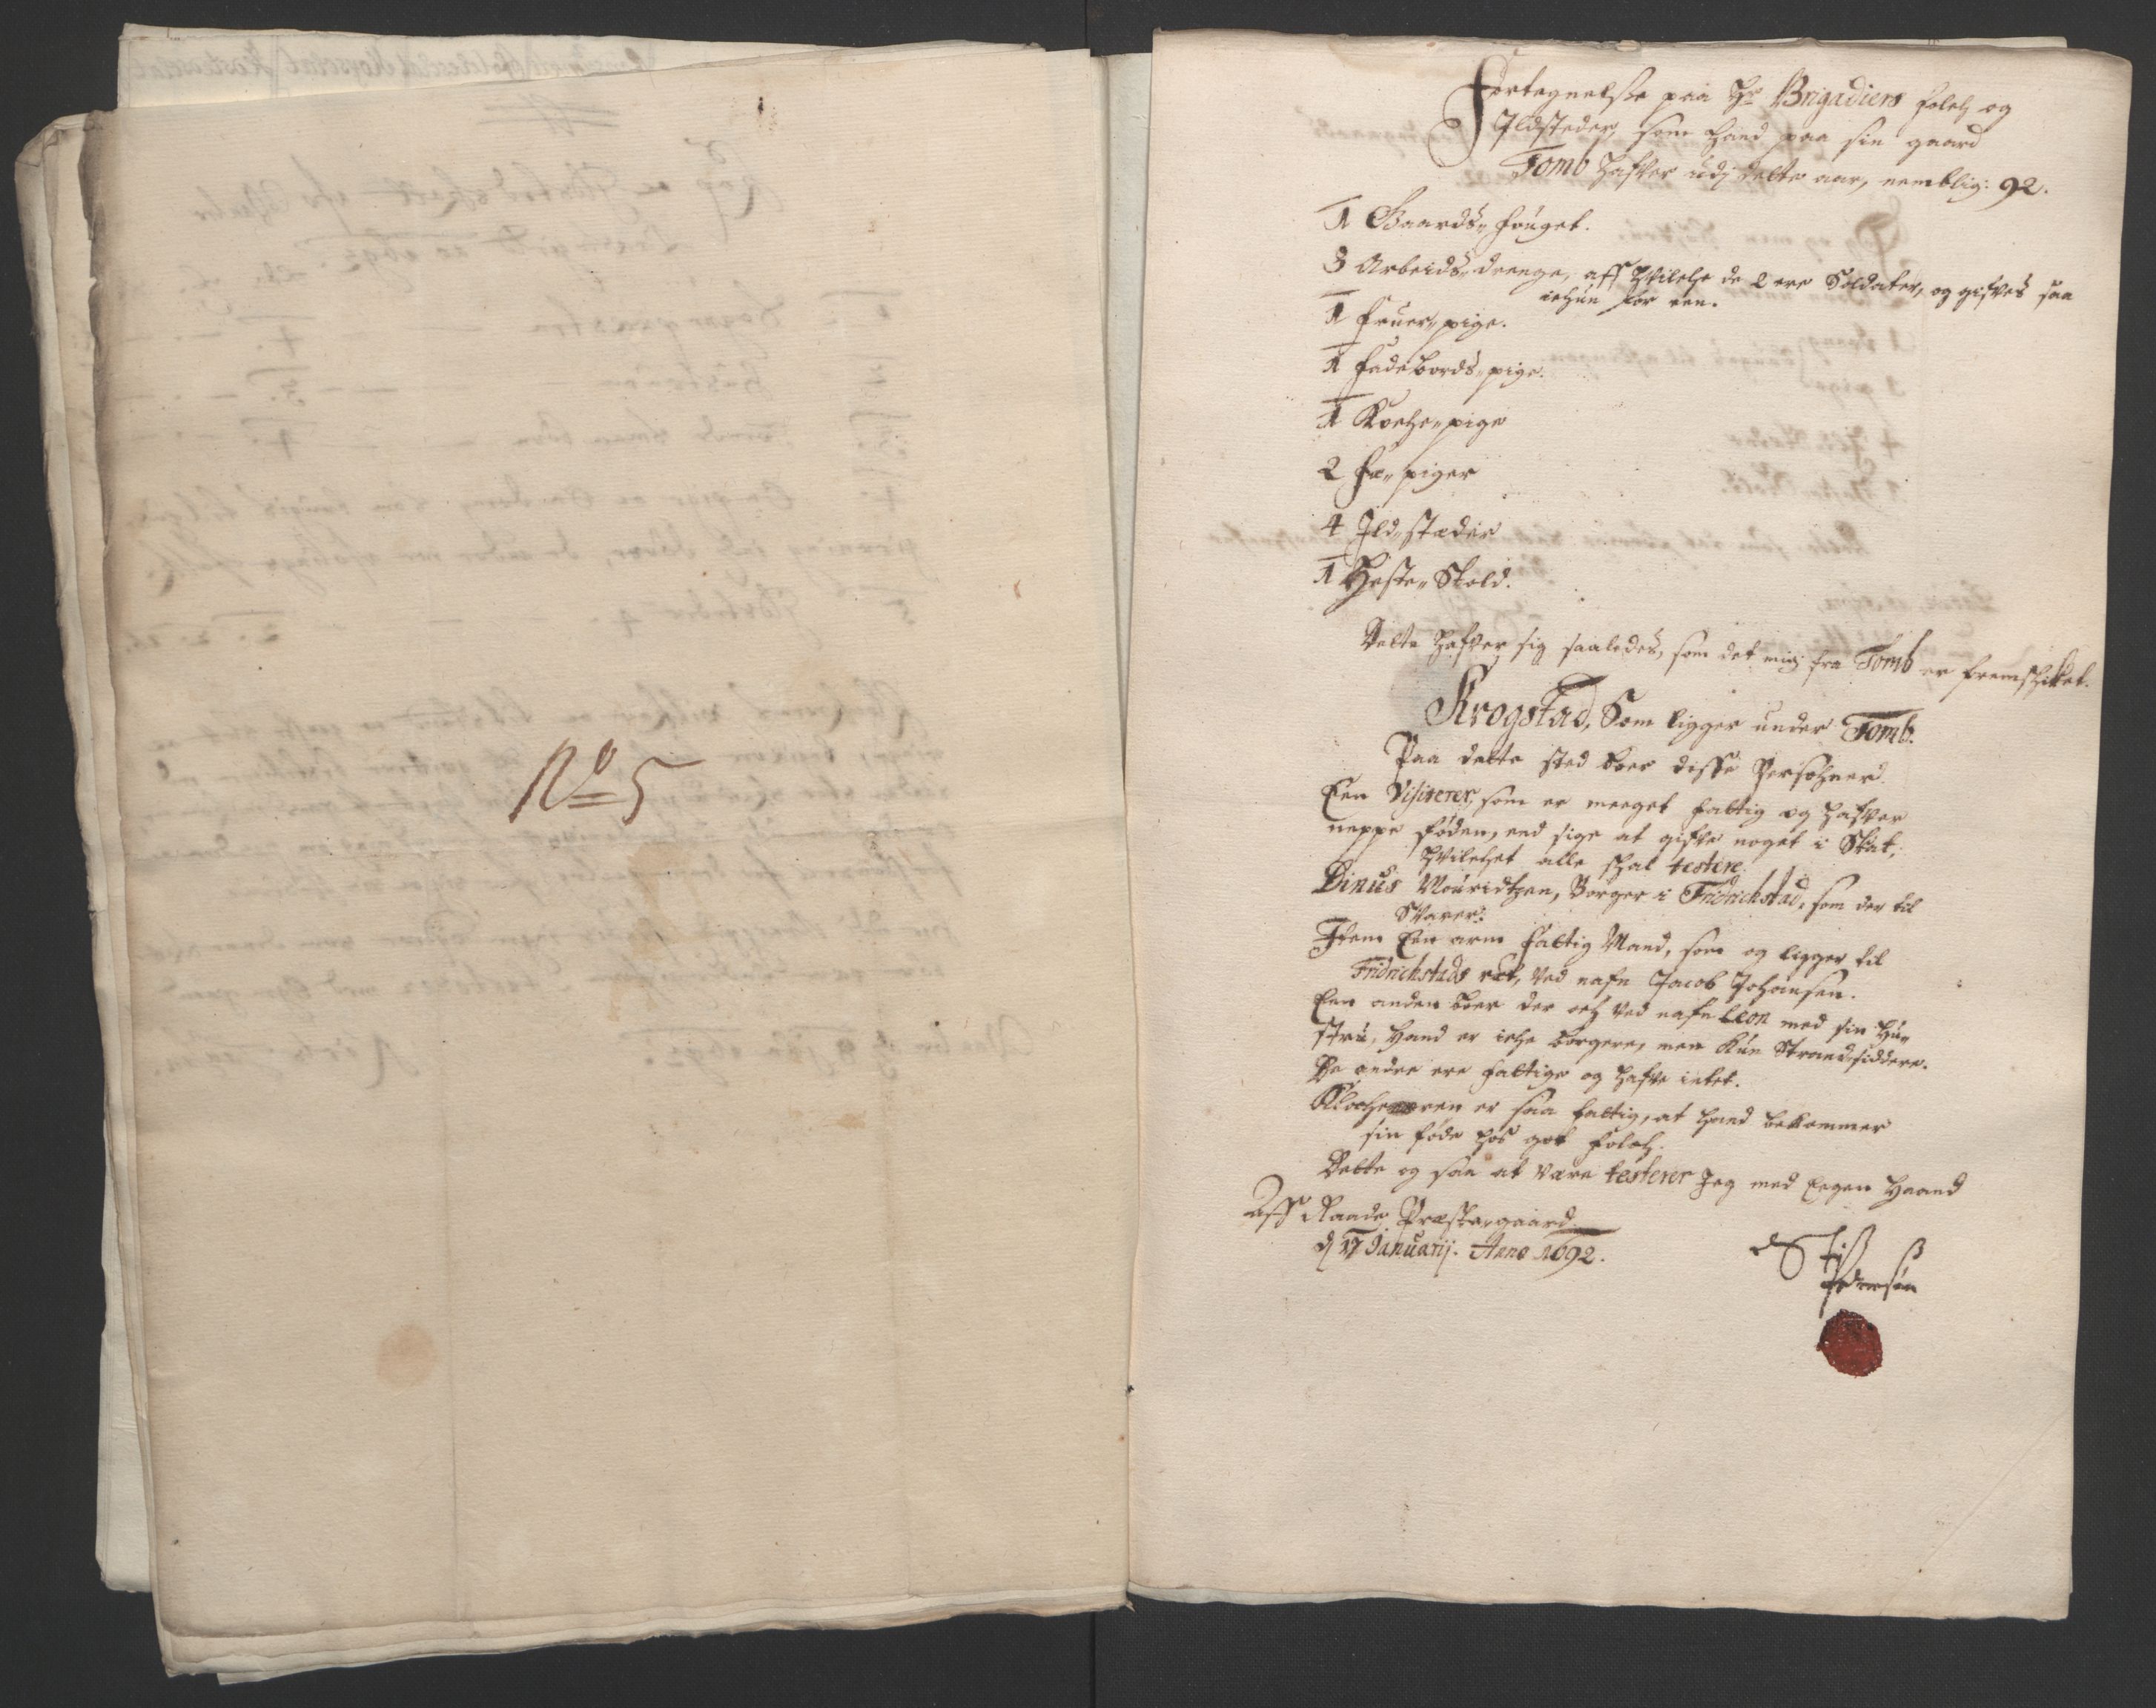 No 5
Fortegnelsse paa Hr Brigadiers folch og
Ildsteder, som Hand paa sin gaard
Tomb hafver udj dette aar, nemblig: 92.
1 Gaards-fouget.
3 Arbeids-drenge, aff hvilche de 2 ere Soldater, og gifves saa
ichun for een.
1 fruer-pige.
1 fadebords-pige.
1 Koche-pige
2 fæ-piger
4 Ild-stæder
1 Heste-Skold.
Dette hafver sig saaledes, som det mig fra Tomb er fremschikket.
Krogstad, Som ligger under Tomb.
Paa dette sted boer disse Persohner.
Een Visiterer, som er meeget fattig og hafver
neppe føden, end sige at gifve noget i Skat,
hvilchet alle schal testere.
Dinus Mouridtzen, Borger i Fridrichstad, som der til
Svarer.
Item Een arm fattig Mand, som og ligger til
Fridrichstads ret, ved nafn Jacob Johansen.
Een anden boer der och ved nafn Leon med sin Hu-
stru, Hand er iche borgere, men kun Strandsiddere.
De andre ere fattige og hafve intet.
Klocheren er saa fattig, at hand bekommer
sin føde hos got folch.
Dette og saa at være testerer Jeg med Eegen Haand
Aff Raade Præstegaard
d 17 Januarij. Anno 1692.
Pedersøn